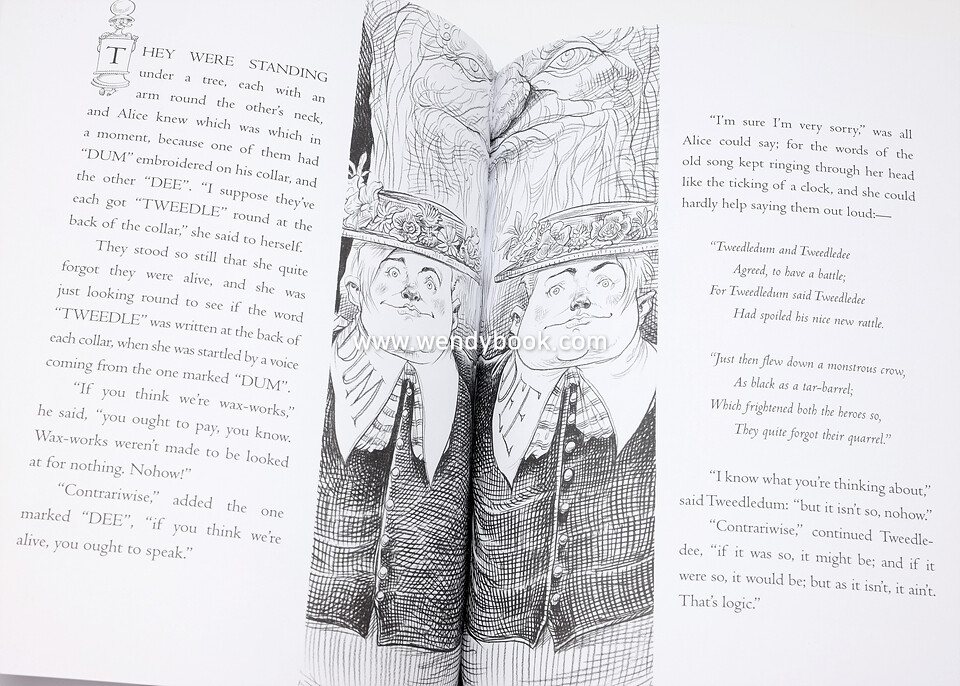 THEY WERE STANDING
under a tree, each with an
arm round the other's neck,
and Alice knew which was which in
a moment, because one of them had
“DUM” embroidered on his collar, and
the other “DEE”. “I suppose they've
each got “TWEEDLE” round at the
back of the collar,” she said to herself.
They stood so still that she quite
forgot they were alive, and she was
just looking round to see if the word
“TWEEDLE” was written at the back of
each collar, when she was startled by a voice
coming from the one marked “DUM”.
“If you think we're wax-works,”
he said, “you ought to pay, you know.
Wax-works weren't made to be looked
at for nothing. Nohow!”
“Contrariwise,” added the one
marked “DEE”, “if you think we're
alive, you ought to speak.”
www.wendybook.com
“I'm sure I'm very sorry,” was all
Alice could say; for the words of the
old song kept ringing through her head
like the ticking of a clock, and she could
hardly help saying them out loud:—
“Tweedledum and Tweedledee
Agreed, to have a battle;
For Tweedledum said Tweedledee
Had spoiled his nice new rattle.
“Just then flew down a monstrous crow,
As black as a tar-barrel;
Which frightened both the heroes so,
They quite forgot their quarrel.”
“I know what you're thinking about,”
said Tweedledum: “but it isn't so, nohow.”
“Contrariwise,” continued Tweedle-
dee, “if it was so, it might be; and if it
were so, it would be; but as it isn't, it ain't.
That's logic.”